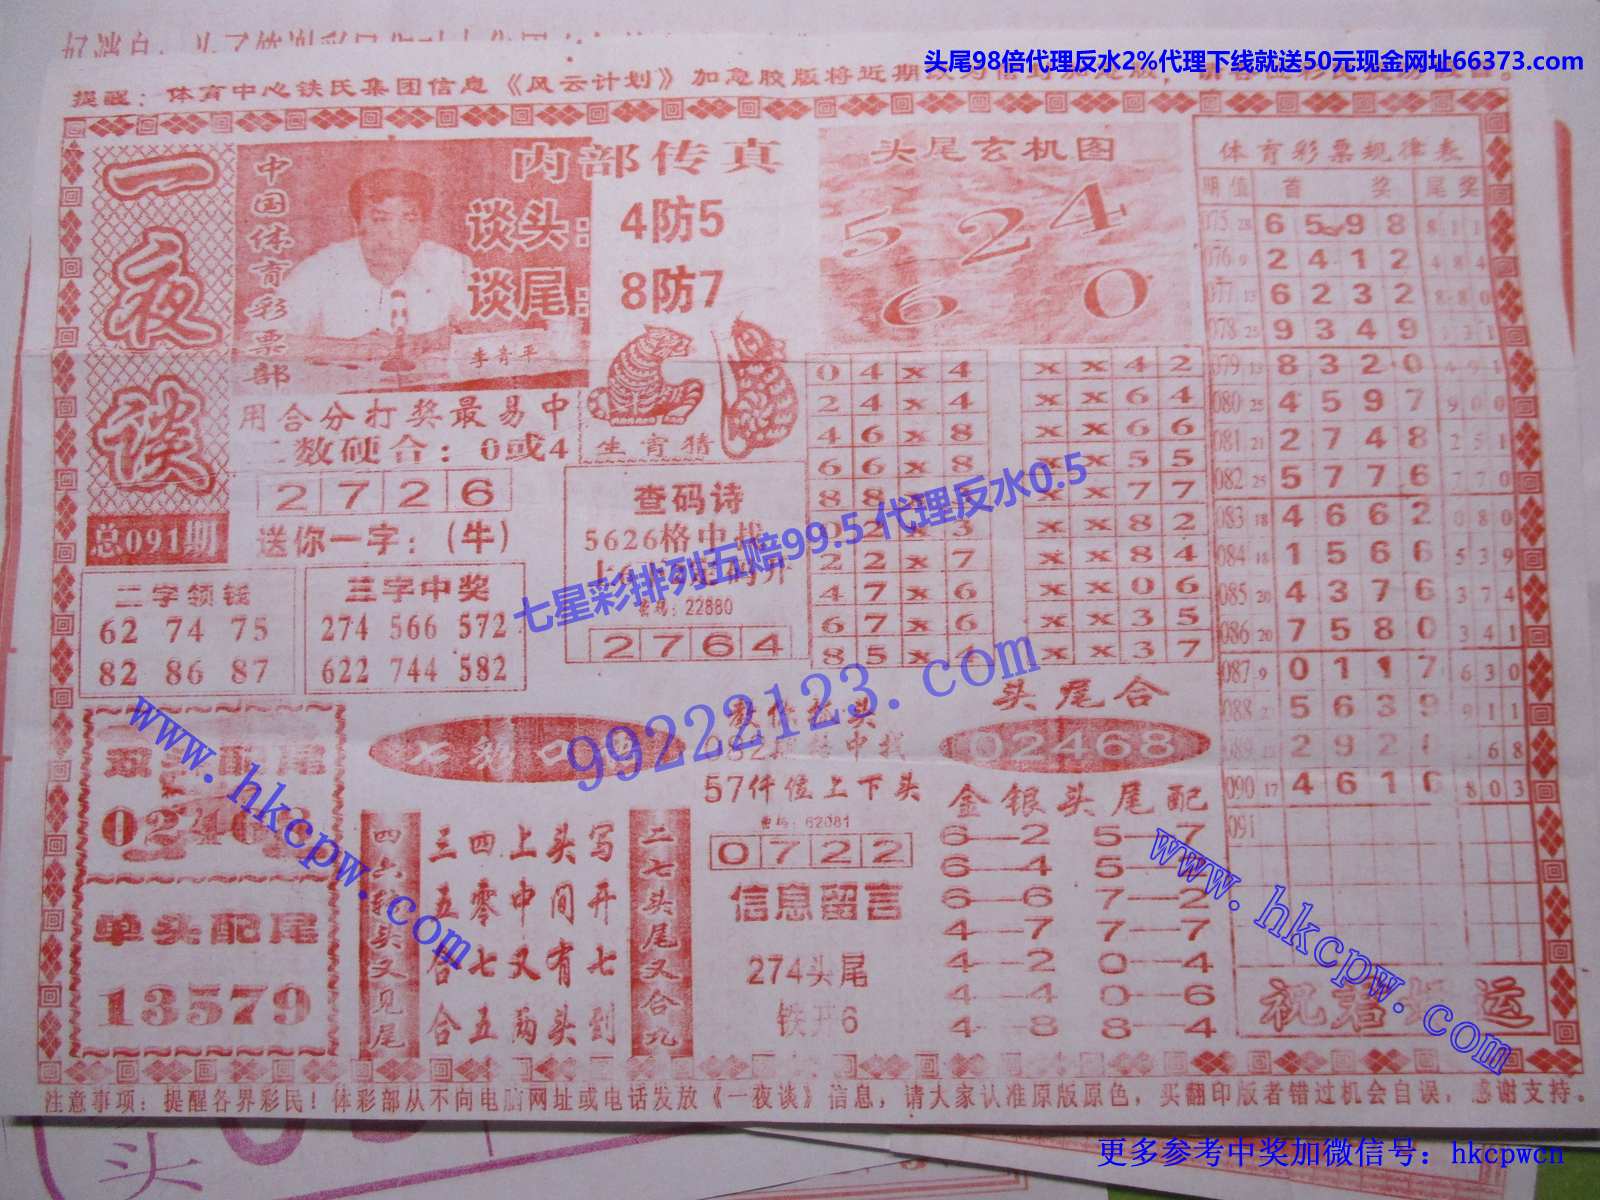 头尾98倍代理反水2%代理下线就送50元现金网址66373.com
提醒：体育中心铁氏集团信息《风云计划》加急胶版将近期
一夜谈
总091期
中国体育彩票部
内部传真
谈头：4防5
谈尾：8防7
李青平
用合分打奖最易中
二数硬合：0或4
2726
送你一字：(牛)
生肖猜
头尾玄机图
5 2 4
6 0
二字领钱
62 74 75
82 86 87
三字中奖
274 566 572
622 744 582
查码诗
5626格中找
密码：22880
2764
0 4 x 4
2 4 x 4
4 6 x 8
6 6 x 8
2 2 x 7
4 7 x 6
6 7 x 6
8 5 x 4
x x 4 2
x x 6 4
x x 6 6
x x 5 5
x x 7 7
x x 8 2
x x 8 4
x x 0 6
x x 3 5
x x 3 7
体育彩票规律表
期 值 首 奖 尾奖
075 28 6 5 9 8 8 1 1
076 9 2 4 1 2 4 8 4
077 13 6 2 3 2 8 8 0
078 25 9 3 4 9
079 13 8 3 2 0 4 9 1
080 25 4 5 9 7 9 0 0
081 21 2 7 4 8 2 5 1
082 25 5 7 7 6 7 0
083 18 4 6 6 2 0 8 0
084 18 1 5 6 6 5 3 9
085 20 4 3 7 6 3 7 4
086 20 7 5 8 0 3 4 1
087 9 0 1 1 7 6 3 0
088 5 6 3 9 9 1 1
089 2 9 2 6 8
090 17 4 6 1 6 8 0 3
091
祝君 运
配尾
单头配尾
13579
四六 头又见尾
三四上头写
五零中间开
合七又有七
合五两头到
二七头尾又合九
57仟位上下头
密码：62081
0722
信息留言
274头尾
铁开6
头尾合
02468
金银头尾配
6—2 5—7
6—4 5—
6—6 7—2
4—7 7—7
4—2 0—4
4—4 0—6
4—8 8—4
七星彩排列五赔99.5 代理反水0.5
99222123.com
www.hkcpw.com
www.hkcpw.com
注意事项：提醒各界彩民！体彩部从不向电脑网址或电话发放《一夜谈》信息，请大家认准原版原色，买翻印版者错过机会自误，感谢支持。
头
更多参考中奖加微信号：hkcpwcn